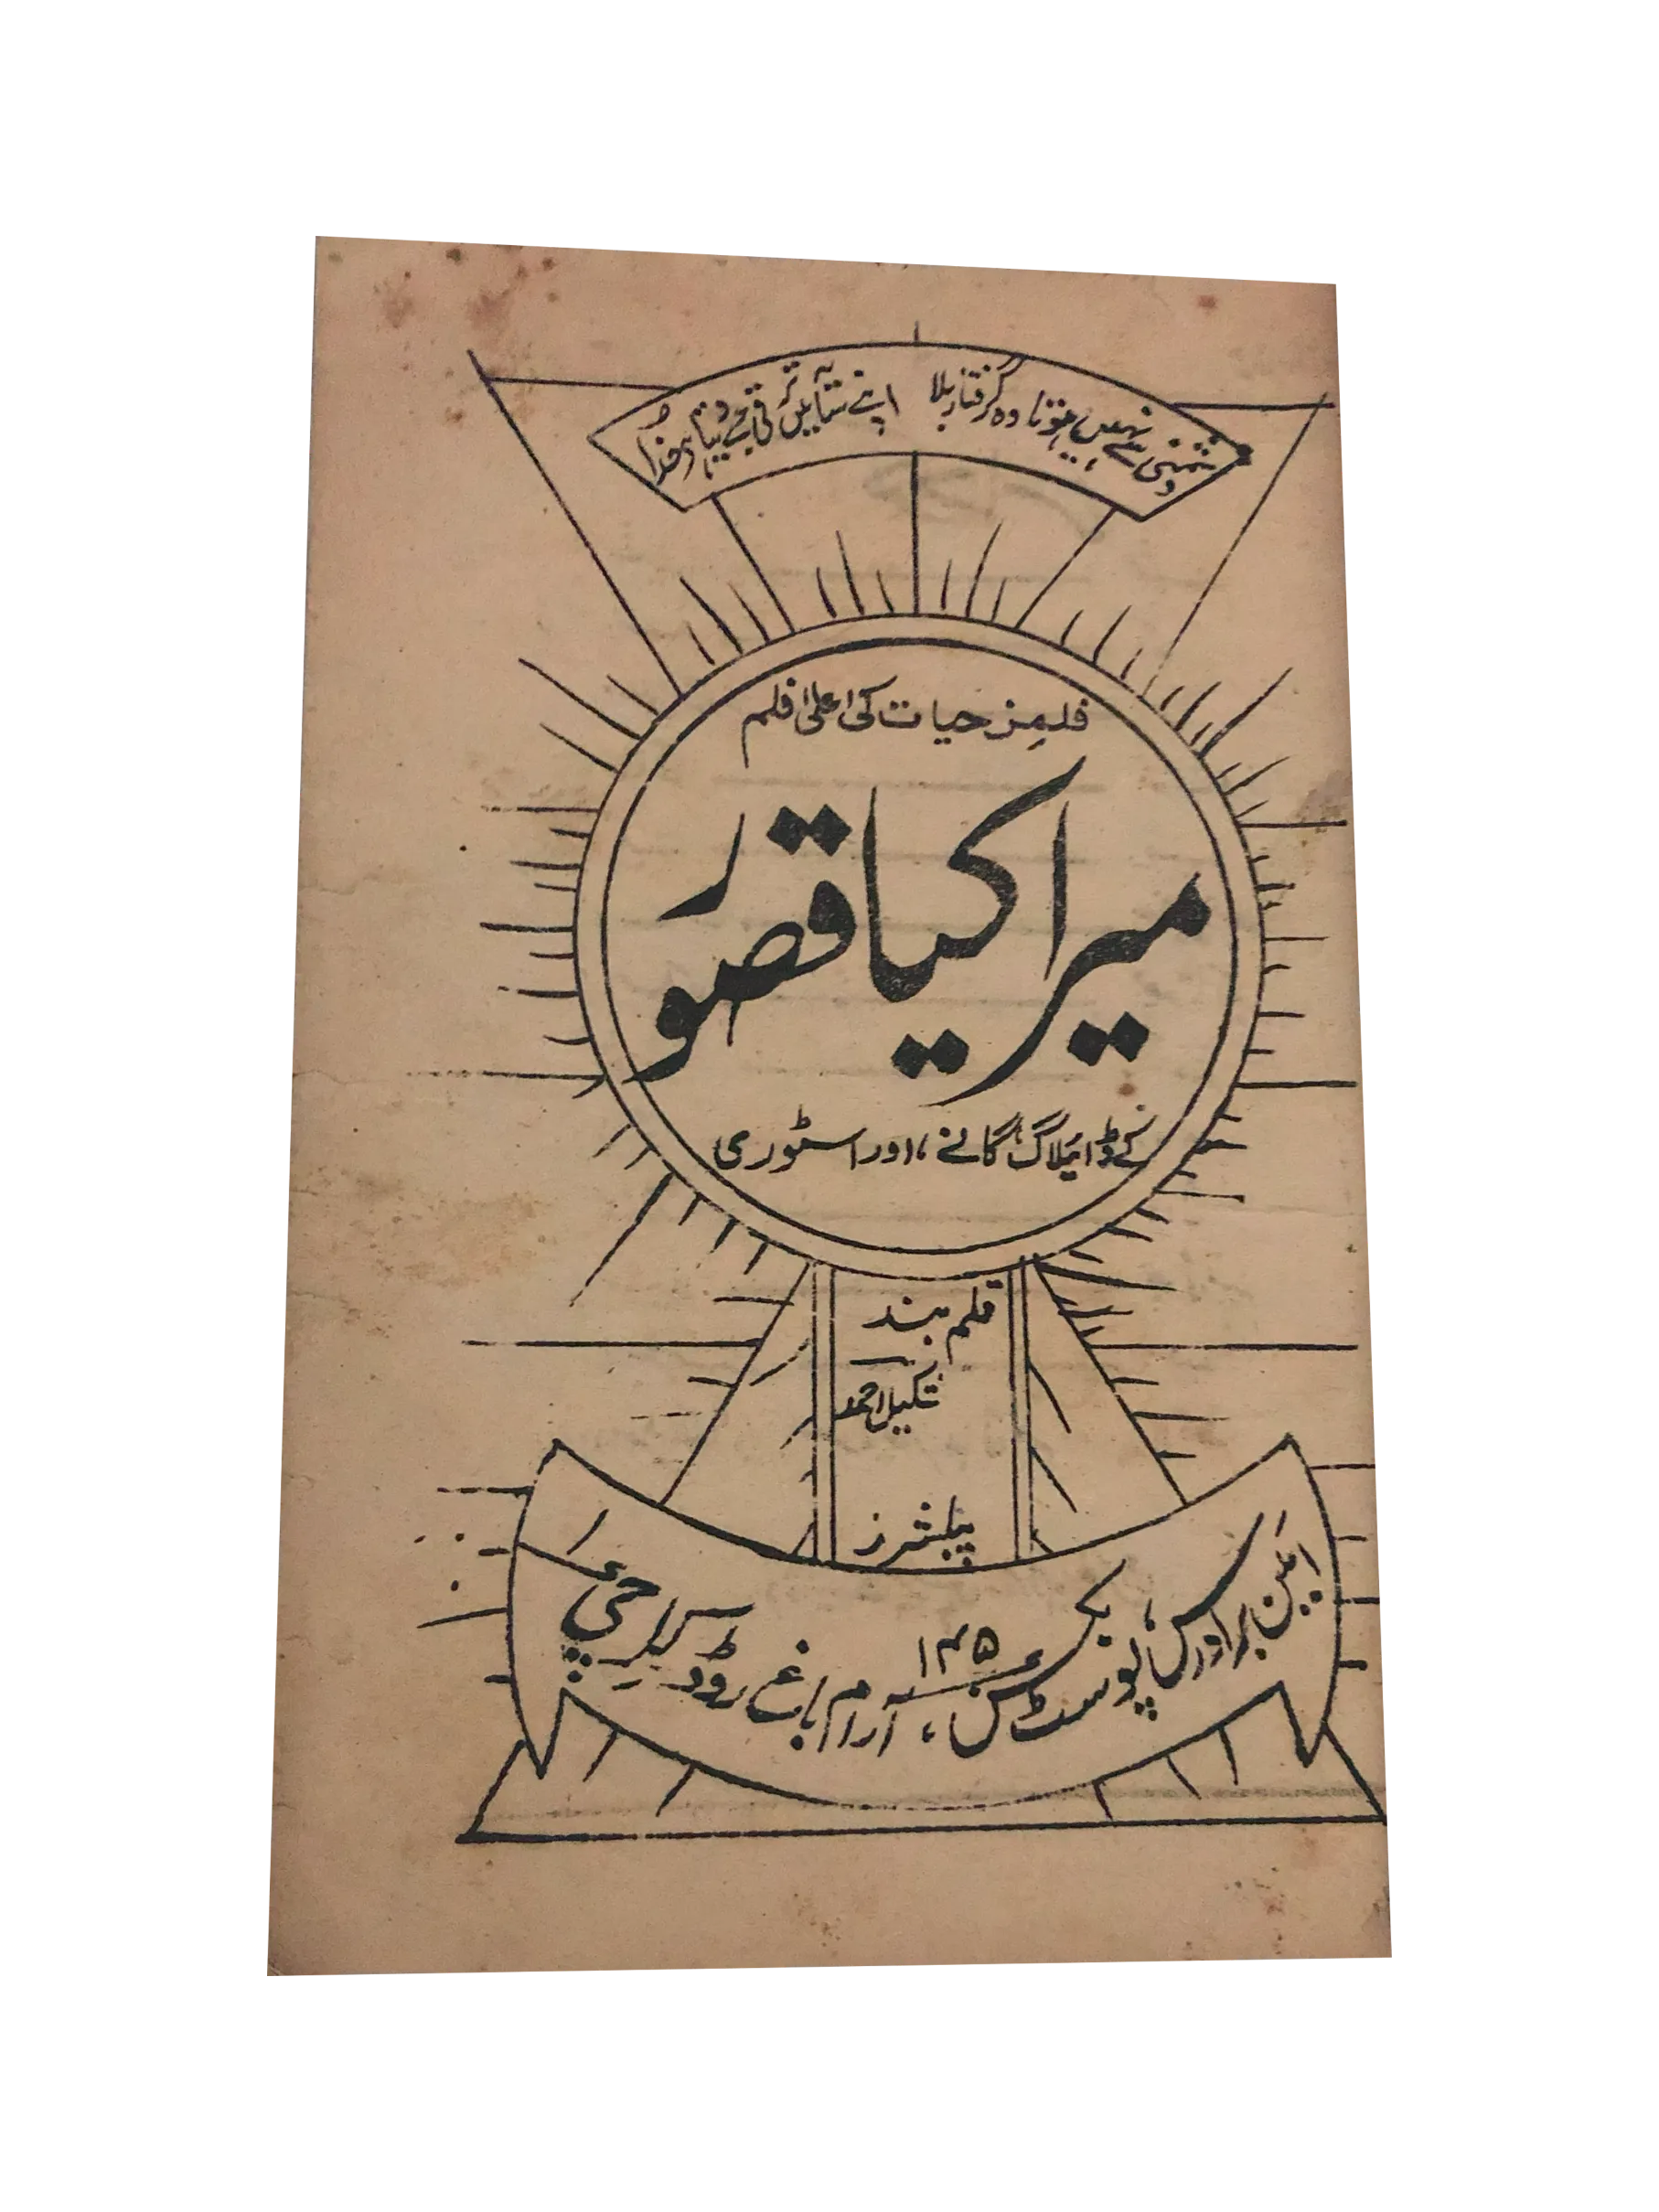 دشمنی سے نہیں ہوتا وہ گرفتار بلا
اپنے سایہ میں ترقی جسے دیتا ہو خدا
فلمز حیات کی اعلیٰ فلم
میرا کیا قصور
کے ڈائیلاگ، گانے، اور اسٹوری
قلم بند
شکیل احمد
پبلشرز
امین برادرس، پوسٹ بکس ۱۴۵، آرام باغ روڈ کراچی ۱